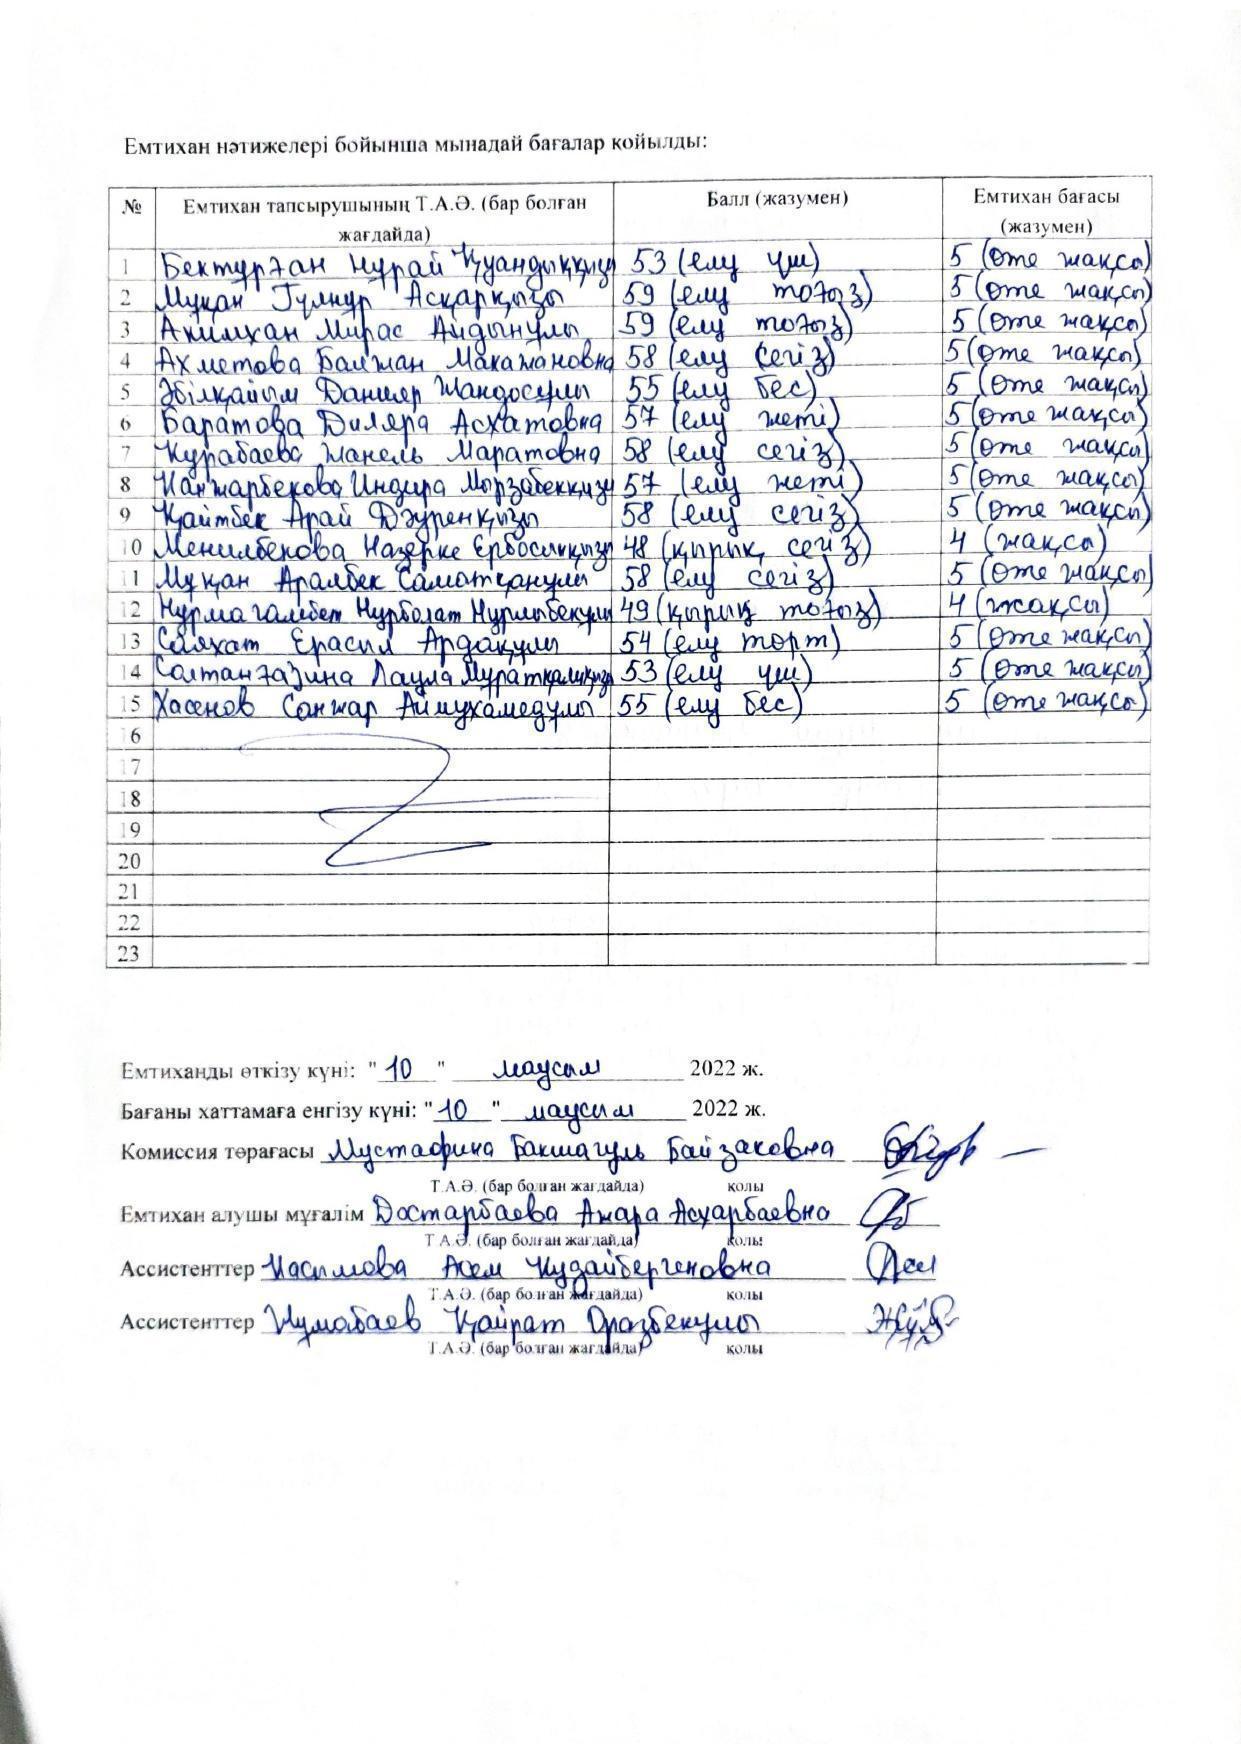 Емтихан нәтижелері бойынша мынадай бағалар қойылды:
№ Емтихан тапсырушының Т.А.Ә. (бар болған жағдайда) Балл (жазумен) Емтихан бағасы (жазумен)
1 Бектурған Нұрай Қуандыққызы 53 (елу үш) 5 (өте жақсы)
2 Мұқан Гүлнұр Асқарқызы 59 (елу тоғыз) 5 (өте жақсы)
3 Акимхан Мирас Айдынұлы 59 (елу тоғыз) 5 (өте жақсы)
4 Ахметова Балжан Макажановна 58 (елу сегіз) 5 (өте жақсы)
5 Әбілқайым Данияр Жандосұлы 55 (елу бес) 5 (өте жақсы)
6 Баратова Диляра Асхатовна 57 (елу жеті) 5 (өте жақсы)
7 Жанель Маратовна 58 (елу сегіз) 5 (өте жақсы)
8 Индира Мырзабекқызы 57 (елу жеті) 5 (өте жақсы)
9 Қайтбек Арай Дәуренқызы 58 (елу сегіз) 5 (өте жақсы)
10 Менилбекова Назерке Ерболқызы 48 (қырық сегіз) 4 (жақсы)
11 Мұқан Аралбек Саматқанұлы 58 (елу сегіз) 5 (өте жақсы)
12 Нұрмағамбет Нұрболат Нұрлыбекұлы 49 (қырық тоғыз) 4 (жақсы)
13 Саяхат Ерасыл Ардақұлы 54 (елу төрт) 5 (өте жақсы)
14 Солтанғазина Лаула Мұратқалиқызы 53 (елу үш) 5 (өте жақсы)
15 Хасенов Санжар Аймұхамедұлы 55 (елу бес) 5 (өте жақсы)
16
17
18
19
20
21
22
23
Емтиханды өткізу күні: "10" маусым 2022 ж.
Бағаны хаттамаға енгізу күні: "10" маусым 2022 ж.
Комиссия төрағасы Мустафина Бакшагуль Байзаковна
Т.А.Ә. (бар болған жағдайда) қолы
Емтихан алушы мұғалім Достарбаева Ажара Асхарбаевна
Т.А.Ә. (бар болған жағдайда) қолы
Ассистенттер Касымова Асем Кудайбергеновна
Т.А.Ә. (бар болған жағдайда) қолы
Ассистенттер Жұмабаев Қайрат Оразбекұлы
Т.А.Ә. (бар болған жағдайда) қолы